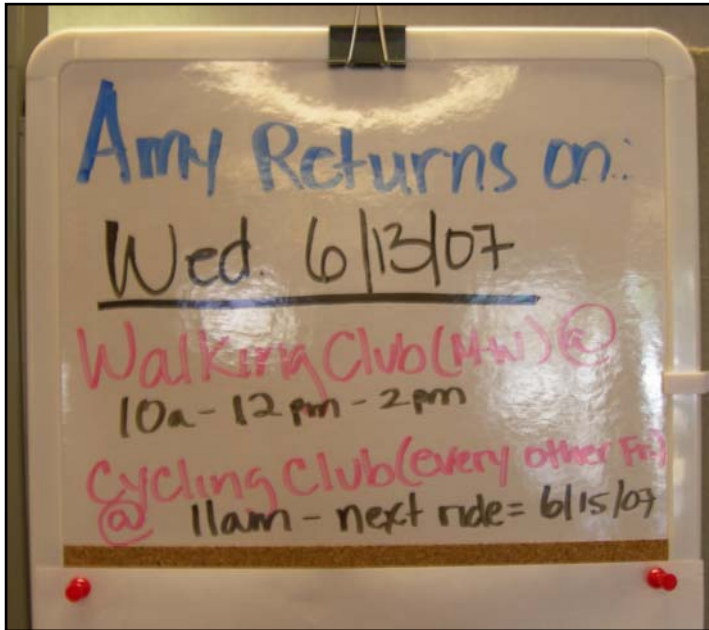 Amy Returns on:
Wed. 6/13/07
Walking Club (M+W) @
10a - 12pm - 2pm
Cycling Club (every other Fri)
@ 11am - next ride = 6/15/07